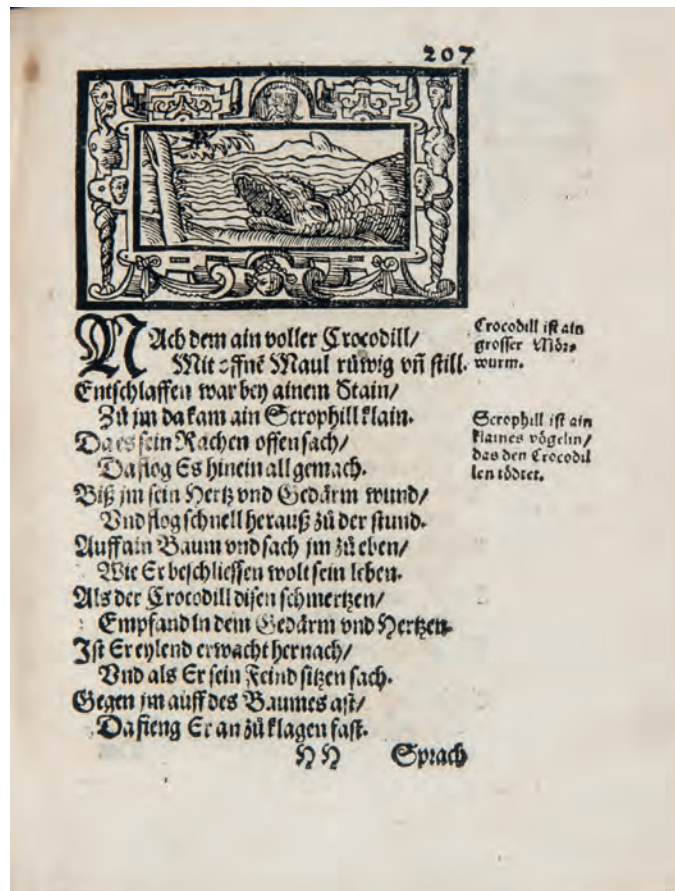 207
NAch dem ain voller Crocodill/
Mit offnē Maul rüwig vñ still.
Entschlaffen war bey ainem Stain/
Zů jm da kam ain Scrophill klain.
Da es sein Rachen offen sach/
Da flog Es hinein all gemach.
Biß jm sein Hertz vnd Gedärm wund/
Vnd flog schnell herauß zů der stund.
Auff ain Baum vnd sach jm zů eben/
Wie Er beschliessen wolt sein leben.
Als der Crocodill disen schmertzen/
Empfand in dem Gedärm vnd Hertzen.
Ist Er eylend erwacht hernach/
Vnd als Er sein Feind sitzen sach.
Gegen jm auff des Baumes ast/
Da fieng Er an zů klagen fast.
HH Sprach
Crocodill ist ain
grosser Mör-
wurm.
Scrophill ist ain
klaines vögelin/
das den Crocodil
len tödtet.